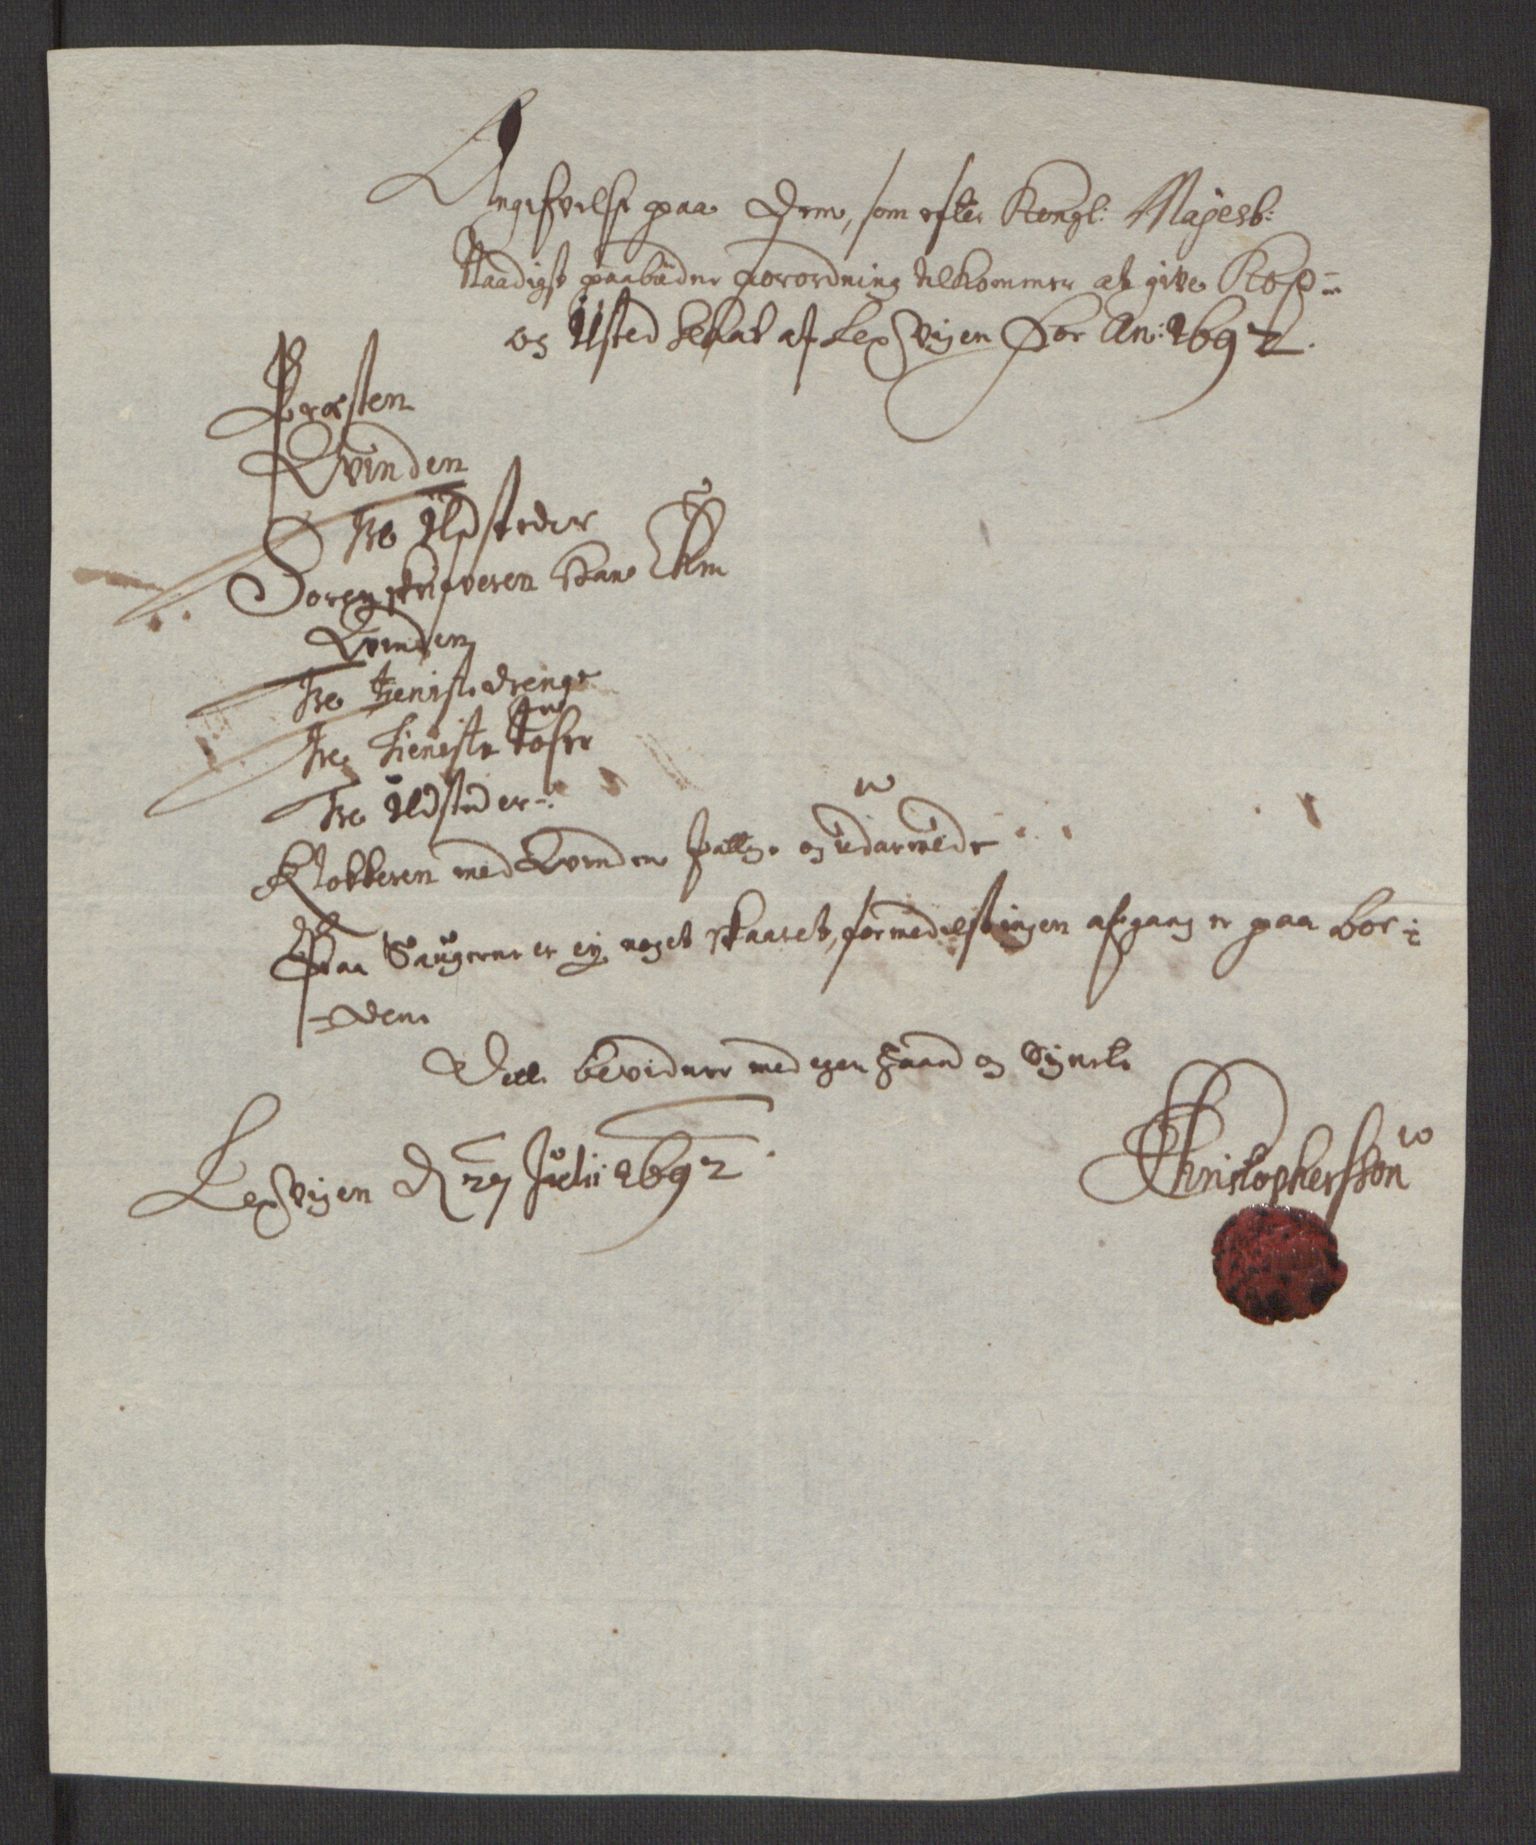 Angifvelse paa Dem, som efter Kongl: Mayest:
Naadigst paabudne forordning tilkommer at give Kop=
og Ilsted Skat af Lexvigen for An: 1692.
Præsten
Qvinden
Tre Ildsteder
Sorenskrifveren Hans
Qvinden
Tre tieniste drenge
Tre tieniste
Tre Ildsteder
Klokkeren med Qvinden fattige og udarmede
Paa Saugerne er ej noget skaaret, formedelst ingen afgang er paa bor=
=dene
Dette bevidner med egen haand og Signete
Lexvigen d 27 Julii 1692
Christophersøn